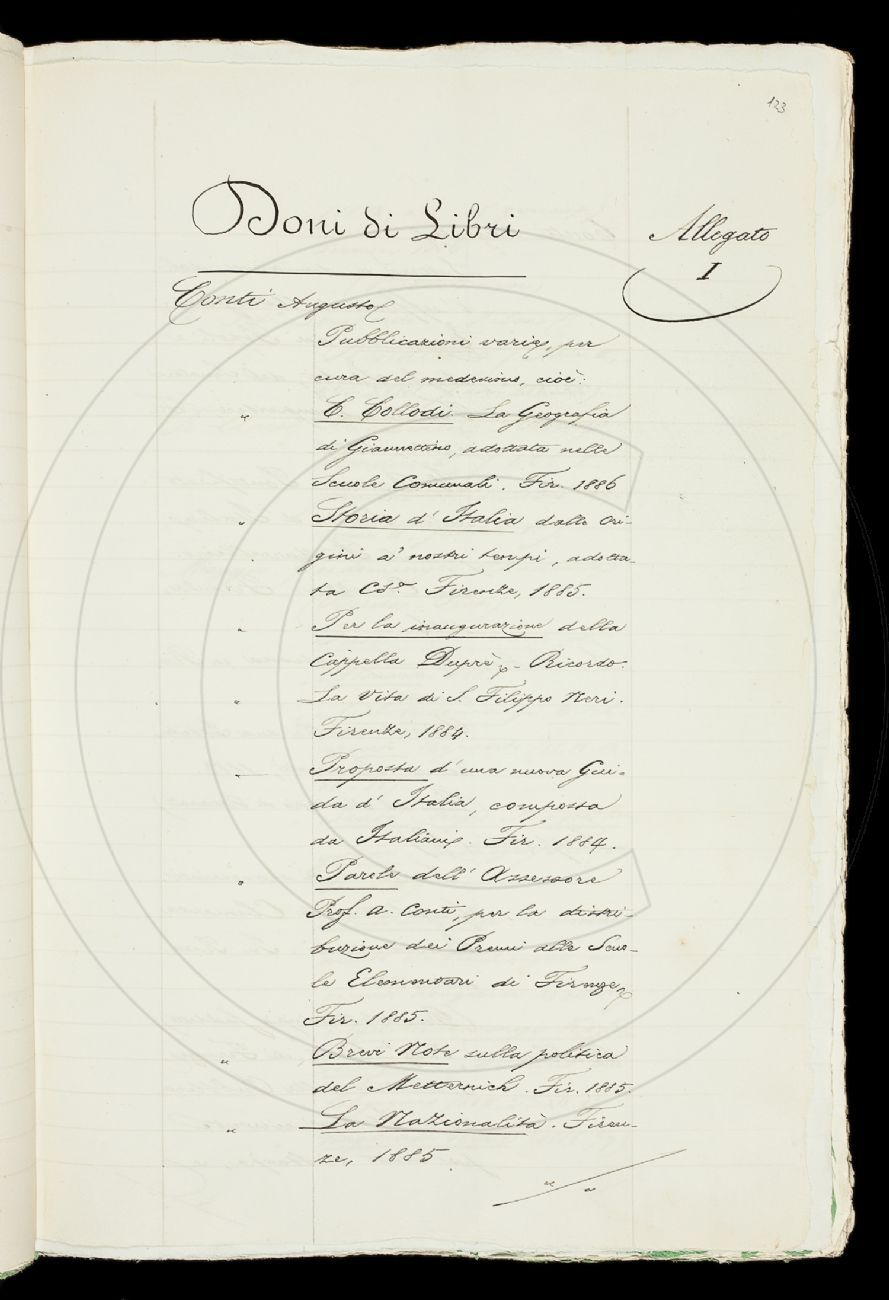 123
Doni di Libri
Allegato
I
Conti Augusto
Pubblicazioni varie, per
cura del medesimo, cioè:
" C. Collodi. La Geografia
di Giannettino, adottata nelle
Scuole Comunali. Fir. 1886
" Storia d' Italia dalle Ori-
gini a' nostri tempi, adotta-
ta Firenze, 1885.
" Per la inaugurazione della
Cappella Duprè - Ricordo.
" La Vita di S. Filippo Neri.
Firenze, 1884.
" Proposta d' una nuova Gui-
da d' Italia, composta
da Italiani. Fir. 1884.
" Parole dell' Assessore
Prof. A. Conti, per la distri-
buzione dei Premi alle Scuo-
le Elementari di Firenze,
Fir. 1885.
" Brevi Note sulla politica
del Metternich. Fir. 1885.
" La Nazionalità. Firen-
ze, 1885.
" "